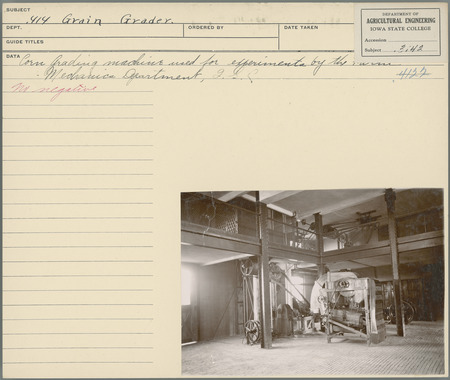 SUBJECT
414 Grain Grader.
DEPT.
ORDERED BY
DATE TAKEN
GUIDE TITLES
DATA Corn Grading machines used for experiments by the Farm
Mechanics Department, I.S.C.
No negative
4122
DEPARTMENT OF
AGRICULTURAL ENGINEERING
IOWA STATE COLLEGE
Accession
Subject 3.42